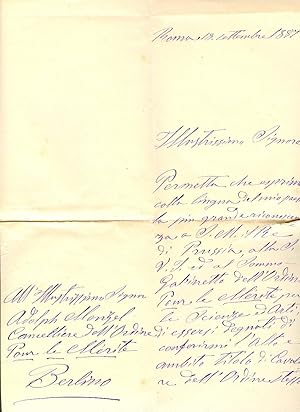 Roma 12 settembre 1887
Illustrissimo Signore
Permetta che esprima
colla lingua del mio paese
la più grande riconoscen
za a S. M. il Re
di Prussia, alla S.
V. I. ed al Sommo
Gabinetto dell'Ordine
Pour le Mérite per
le Scienze ed Arti
di essersi degnati di
conferirmi l'alto e
ambito titolo di Cavalie
re dell'Ordine stesso
All' Illustrissimo Signor
Adolph Menzel
Cancelliere dell'Ordine
Pour le Mérite
Berlino